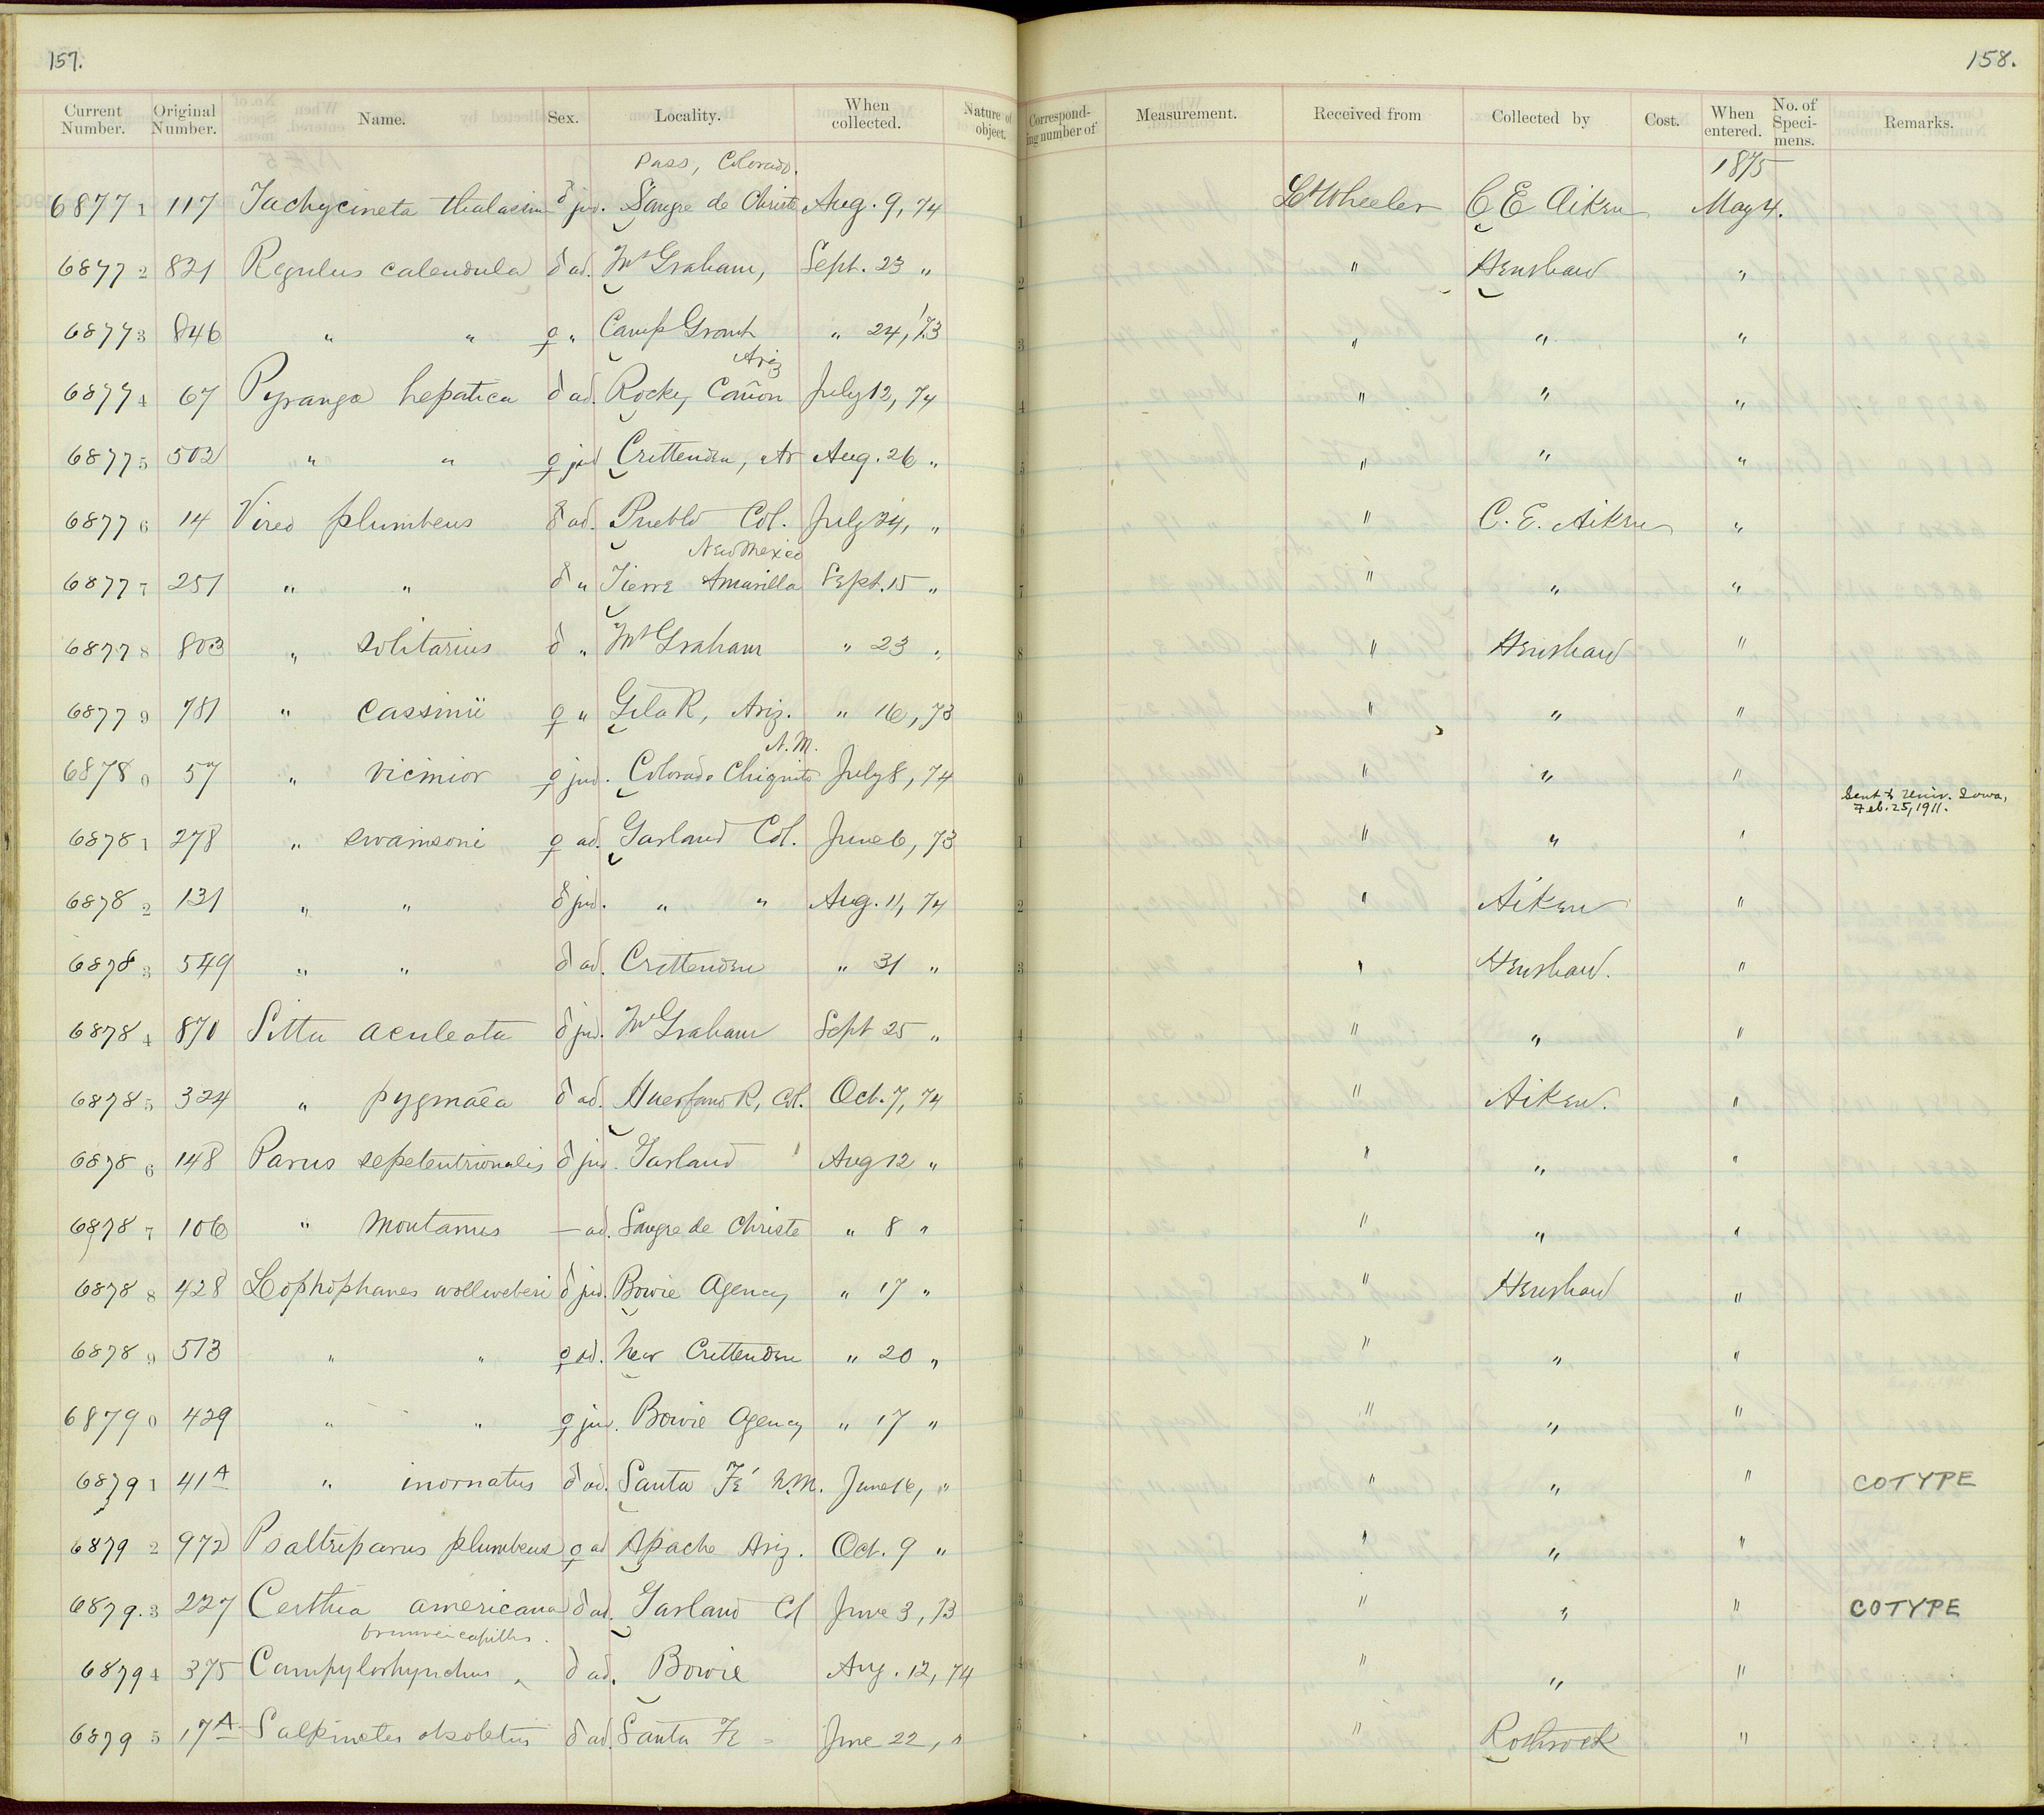 157.
158.
Current Number. Original Number. Name. Sex. Locality. When collected. Nature of object. Correspond-ing number of Measurement. Received from Collected by Cost. When entered. No. of Speci-mens. Remarks.
Pass, Colorado. 1875
68771 117 Tachycineta thalassin ♂ juv. Sangre de Christo Aug. 9, 74 Lt Wheeler C E Aiken May 4.
68772 821 Regulus calendula ♂ ad. Mt Graham, Sept. 23 " " Henshaw "
68773 846 " " ♀ " Camp Grant " 24, '73 " " "
Ariz
68774 67 Pyranga hepatica ♂ ad. Rocky Cañon July 12, 74 " " "
68775 502 " " ♀ juv Crittenden, Ar Aug. 26 " " " "
68776 14 Vireo plumbeus ♂ ad. Pueblo Col. July 24, " " C. E. Aiken "
New Mexico
68777 251 " " ♂ " Tierra Amarilla Sept. 15 " " " "
68778 803 " solitarius ♂ " Mt Graham " 23 " " Henshaw "
68779 781 " cassinii ♀ " Gila R, Ariz. " 16, 73 " " "
N. M.
68780 57 " vicinior ♀ juv. Colorado Chiquito July 8, 74 " " "
Sent to Univ. Iowa, Feb. 25, 1911.
68781 278 " swainsoni ♀ ad. Garland Col. June 6, 73 " " "
68782 131 " " ♂ juv. " " Aug. 11, 74 " Aiken "
68783 549 " " ♂ ad. Crittenden " 31 " " Henshaw. "
68784 870 Sitta aculeata ♂ juv. Mt Graham Sept 25 " " " "
68785 324 " pygmaea ♂ ad. Huerfano R, Col. Oct. 7, 74 " Aiken. "
68786 148 Parus sepetentrionalis ♂ juv. Garland Aug 12 " " " "
68787 106 " montanus — ad. Sangre de Christo " 8 " " " "
68788 428 Lophophanes wollweberi ♂ juv. Bowie Agency " 17 " " Henshaw "
68789 513 " " ♀ ad. Near Crittenden " 20 " " " "
68790 429 " " ♀ juv. Bowie Agency " 17 " " " "
68791 41A " inornatus ♂ ad. Santa Fé N.M. June 16, " " " " COTYPE
68792 972 Psaltriparus plumbeus ♀ ad Apache Ariz. Oct. 9 " " " "
68793 227 Certhia americana ♂ ad. Garland Col June 3, 73 " " " COTYPE
brunneicapillus.
68794 375 Campylorhynchus ♂ ad. Bowie Aug. 12, 74 " " "
68795 17A Salpinctes obsoletus ♂ ad. Santa Fe June 22, " " Rothrock "